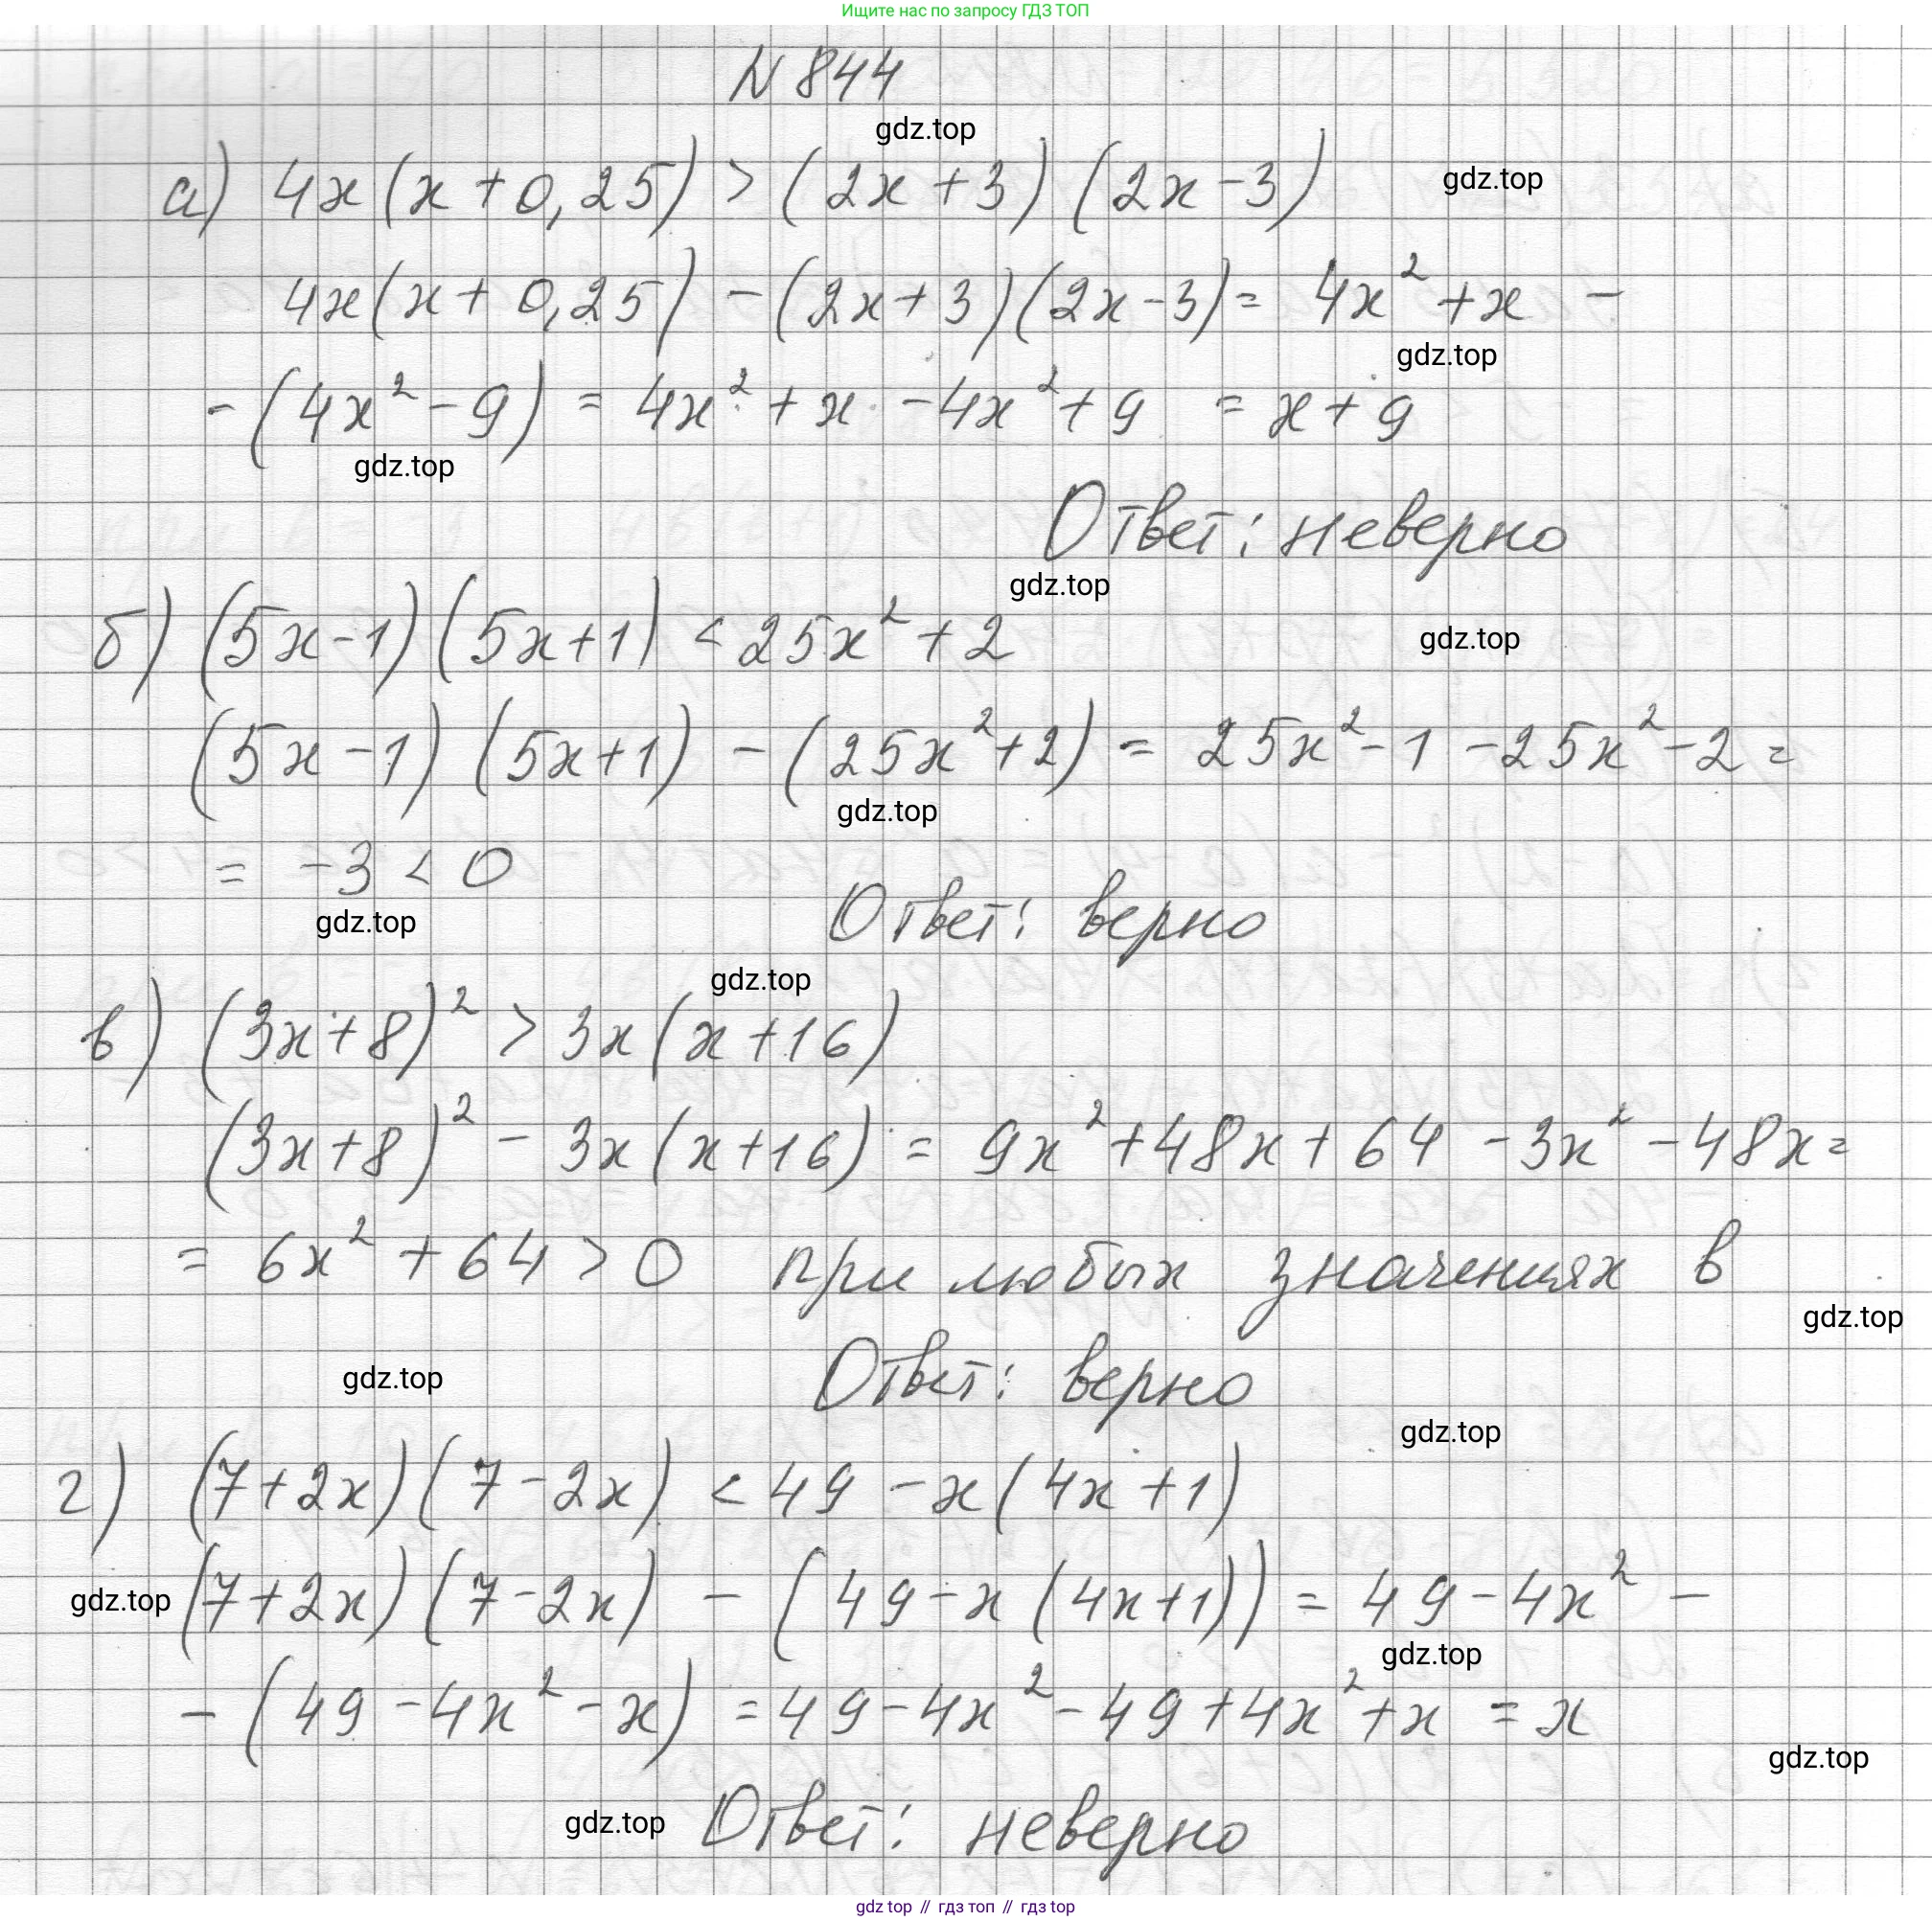 Ищите нас по запросу ГДЗ ТОП
N 844
gdz.top
а) 4x(x+0,25) > (2x+3)(2x-3)
gdz.top
4x(x+0,25) - (2x+3)(2x-3) = 4x² + x -
gdz.top
-(4x² - 9) = 4x² + x - 4x² + 9 = x + 9
gdz.top
Ответ: неверно
gdz.top
б) (5x-1)(5x+1) < 25x² + 2
gdz.top
(5x-1)(5x+1) - (25x²+2) = 25x² - 1 - 25x² - 2 =
gdz.top
= -3 < 0
gdz.top
Ответ: верно
gdz.top
в) (3x+8)² > 3x(x+16)
(3x+8)² - 3x(x+16) = 9x² + 48x + 64 - 3x² - 48x =
= 6x² + 64 > 0 при любых значениях в
gdz.top
Ответ: верно
gdz.top
gdz.top
г) (7+2x)(7-2x) < 49 - x(4x+1)
gdz.top (7+2x)(7-2x) - (49-x(4x+1)) = 49 - 4x² -
gdz.top
-(49 - 4x² - x) = 49 - 4x² - 49 + 4x² + x = x
gdz.top
gdz.top Ответ: неверно
gdz top // гдз топ // гдз top